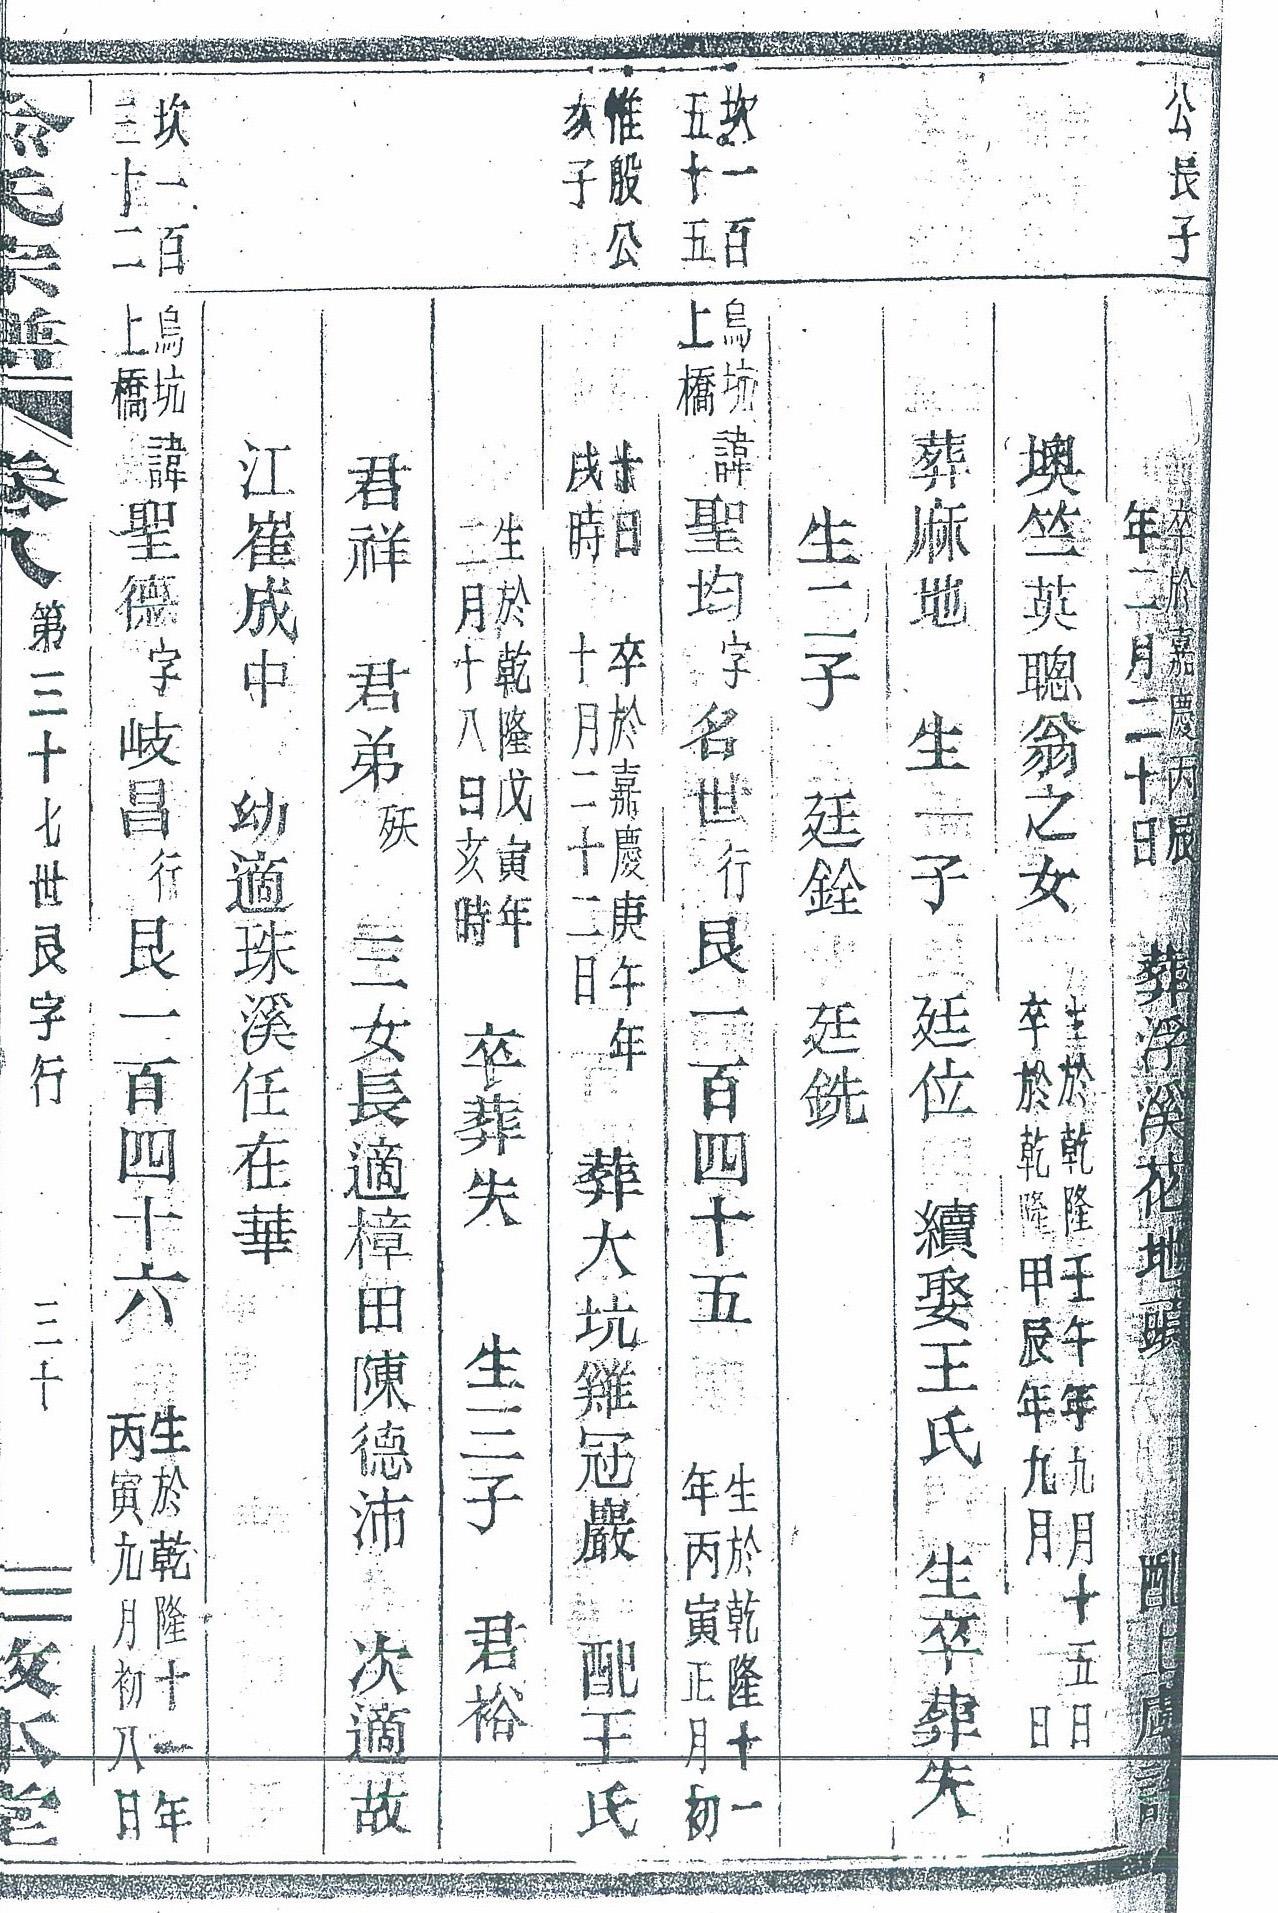 公長子
卒於嘉慶丙辰
年二月二十日
葬浮溪花地頭
墺竺英聰翁之女
生於乾隆壬午年九月十五日
卒於乾隆甲辰年九月　日
葬麻地　生一子　廷位　續娶王氏　生卒葬失
生二子　廷銓　廷銑
坎一百
五十五
烏坑
上橋
諱聖均字名世行艮一百四十五
生於乾隆十一
年丙寅正月初
惟殷公
亥子
廿日
戌時
卒於嘉慶庚午年
十月二十二日
葬大坑雞冠巖　配王氏
生於乾隆戊寅年
二月十八日亥時
卒葬失　生三子　君裕
君祥　君弟殀　三女長適樟田陳德沛　次適故
江崔成中　幼適珠溪任在華
坎一百
三十二
烏坑
上橋
諱聖德字岐昌行艮一百四十六
生於乾隆十一年
丙寅九月初八日
氏宗譜　卷八　第三十七世艮字行　三十